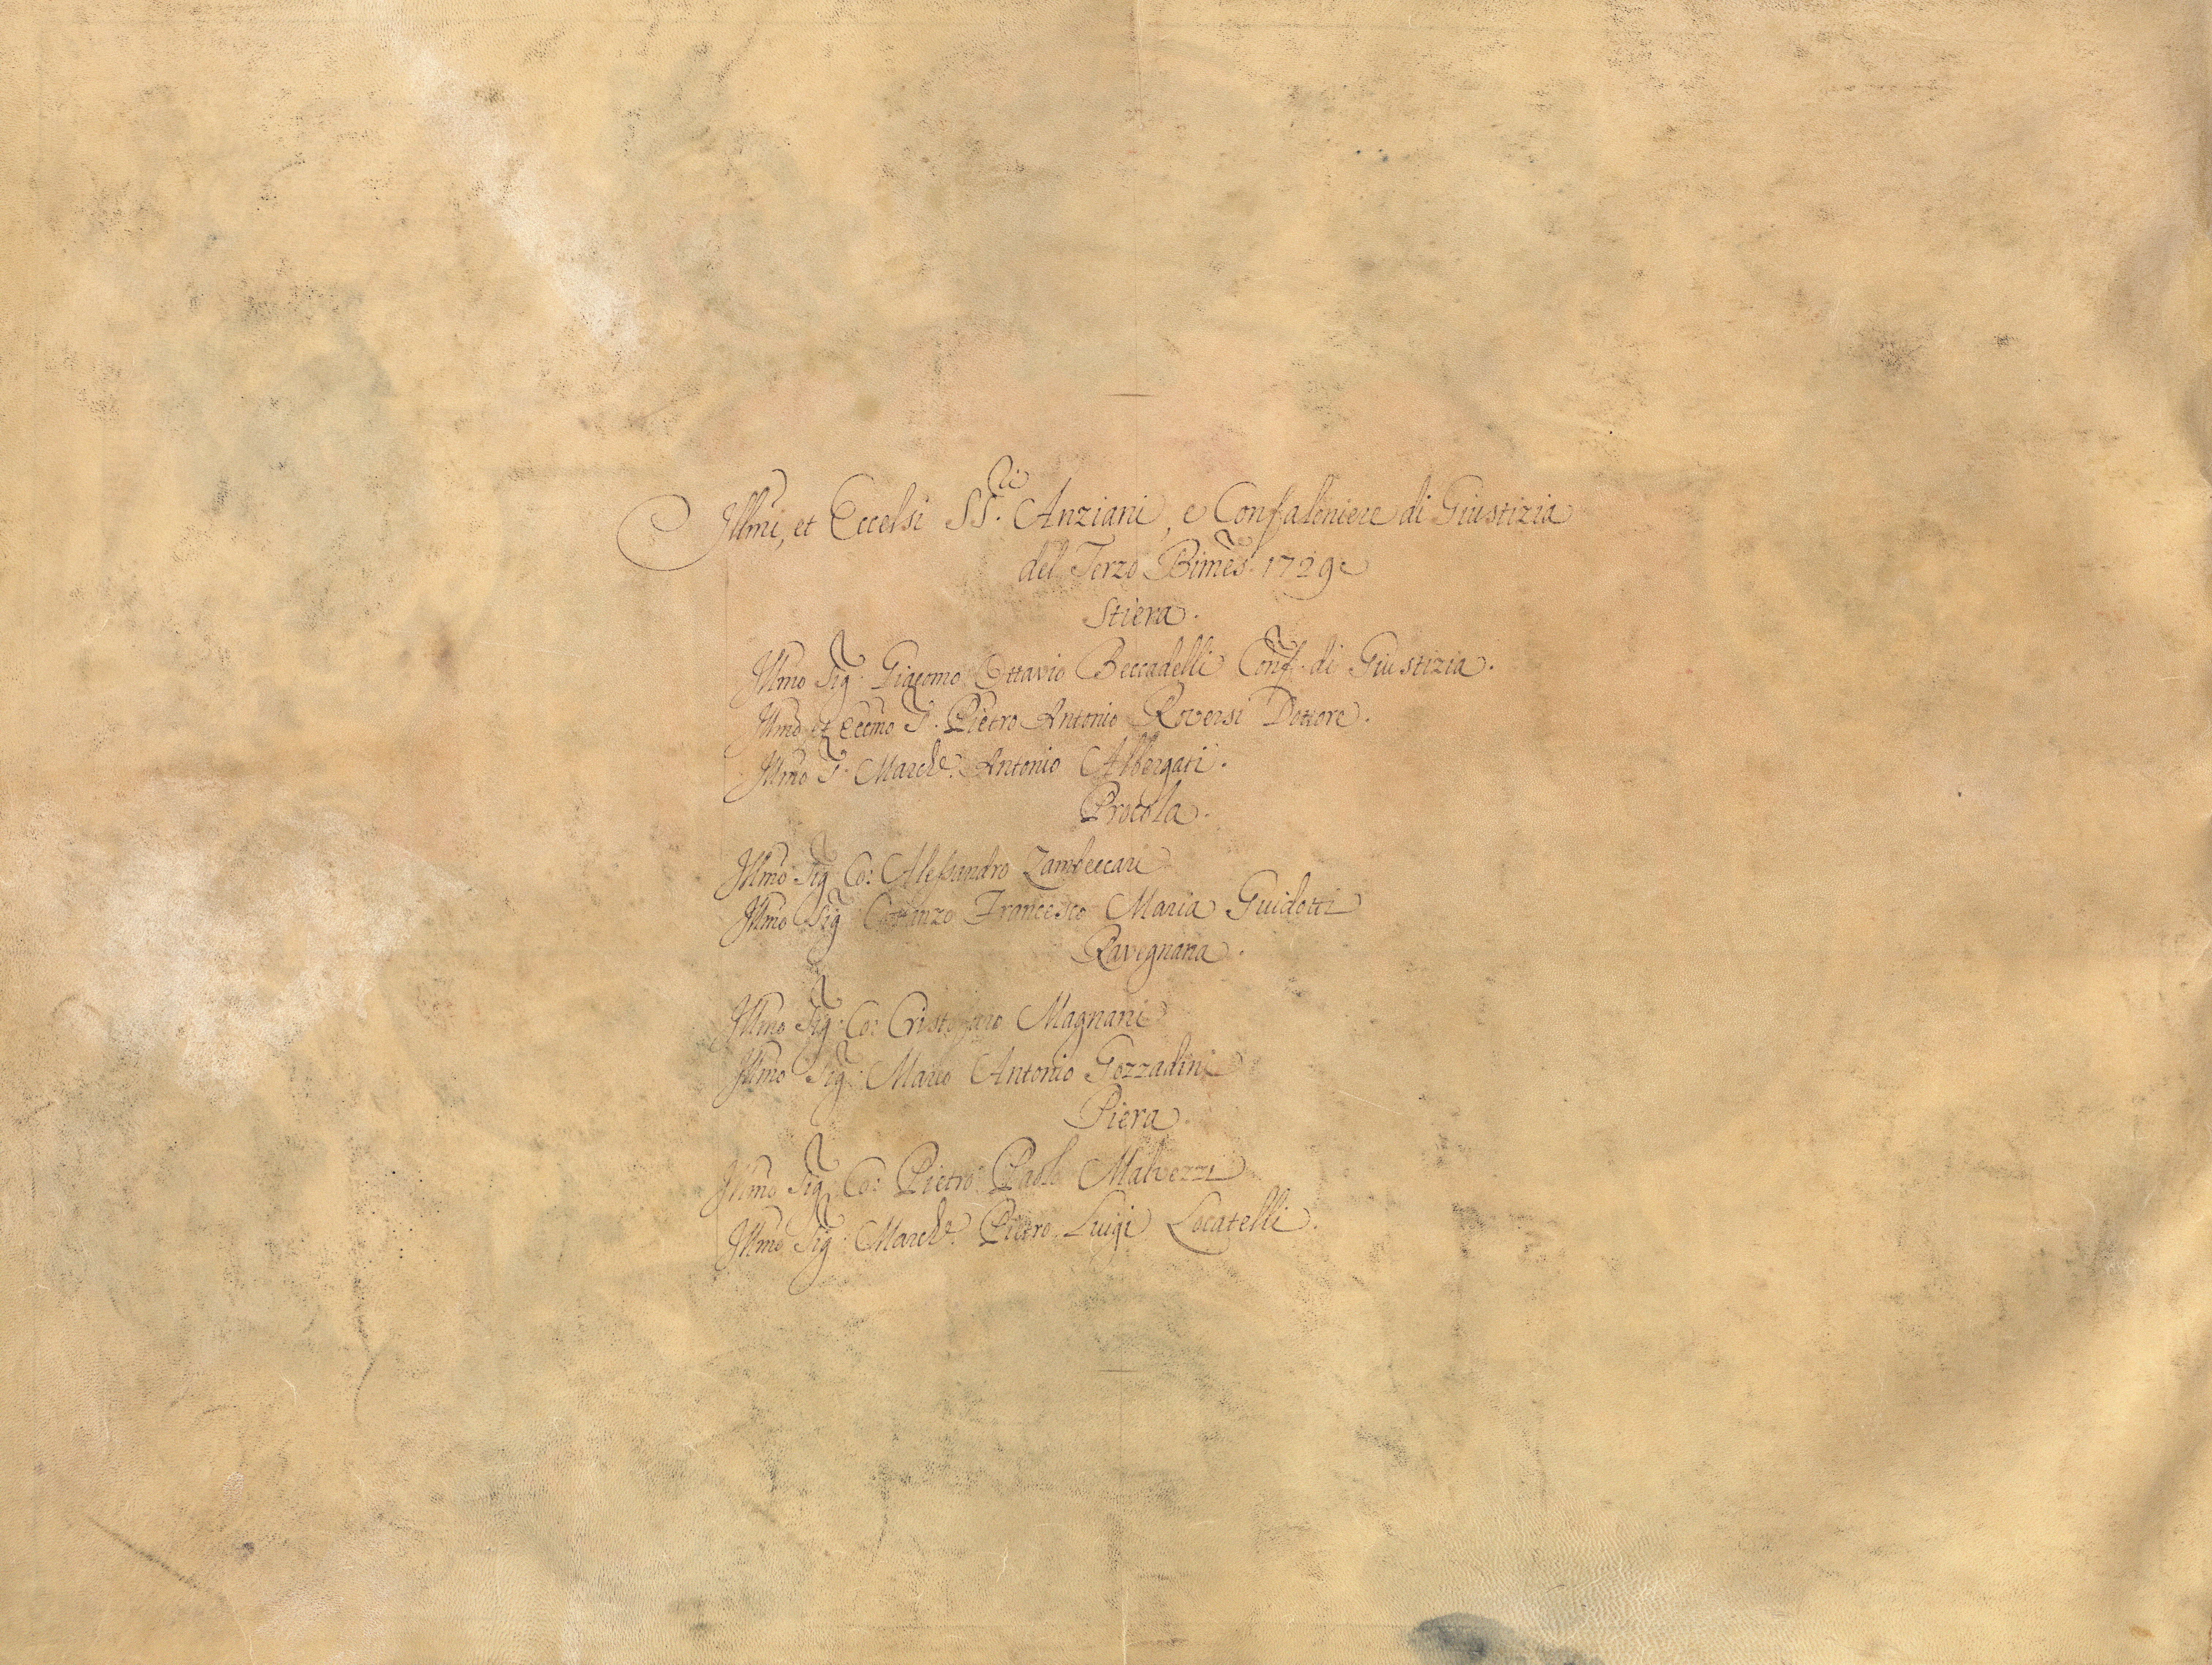 Illmi, et Eccelsi SS.ri Anziani, e Confaloniere di Giustizia
del Terzo Bimes. 1729
Stiera.
Illmo Sig: Giacomo Ottavio Beccadelli Conf. di Giustizia.
Illmo, et Eccmo S. Pietro Antonio Roversi Dottore.
Illmo S. March.e Antonio Albergati.
Procola.
Illmo Sig: Co: Alessandro Zambeccari
Illmo Sig: Costanzo Francesco Maria Guidotti
Ravegnana.
Illmo Sig: Co: Cristofaro Magnani
Illmo Sig: Marco Antonio Gozzadini
Piera.
Illmo Sig: Co: Pietro Paolo Malvezzi
Illmo Sig: March.e Pietro Luigi Locatelli.